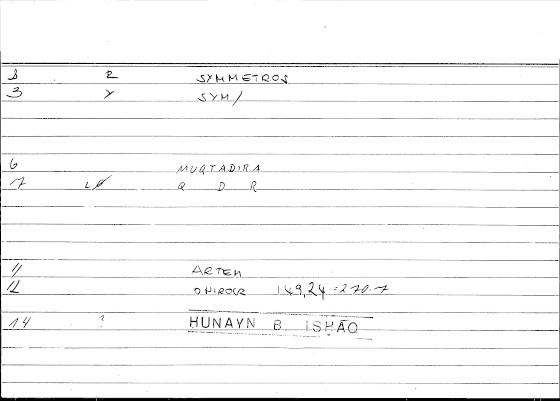 R SYMMETROS
3 Y SYM/
6 MUQTADIRA
7 Q D R
11 ARTEM
149,24 = 270.7
14 ? HUNAYN B. ISḤĀQ